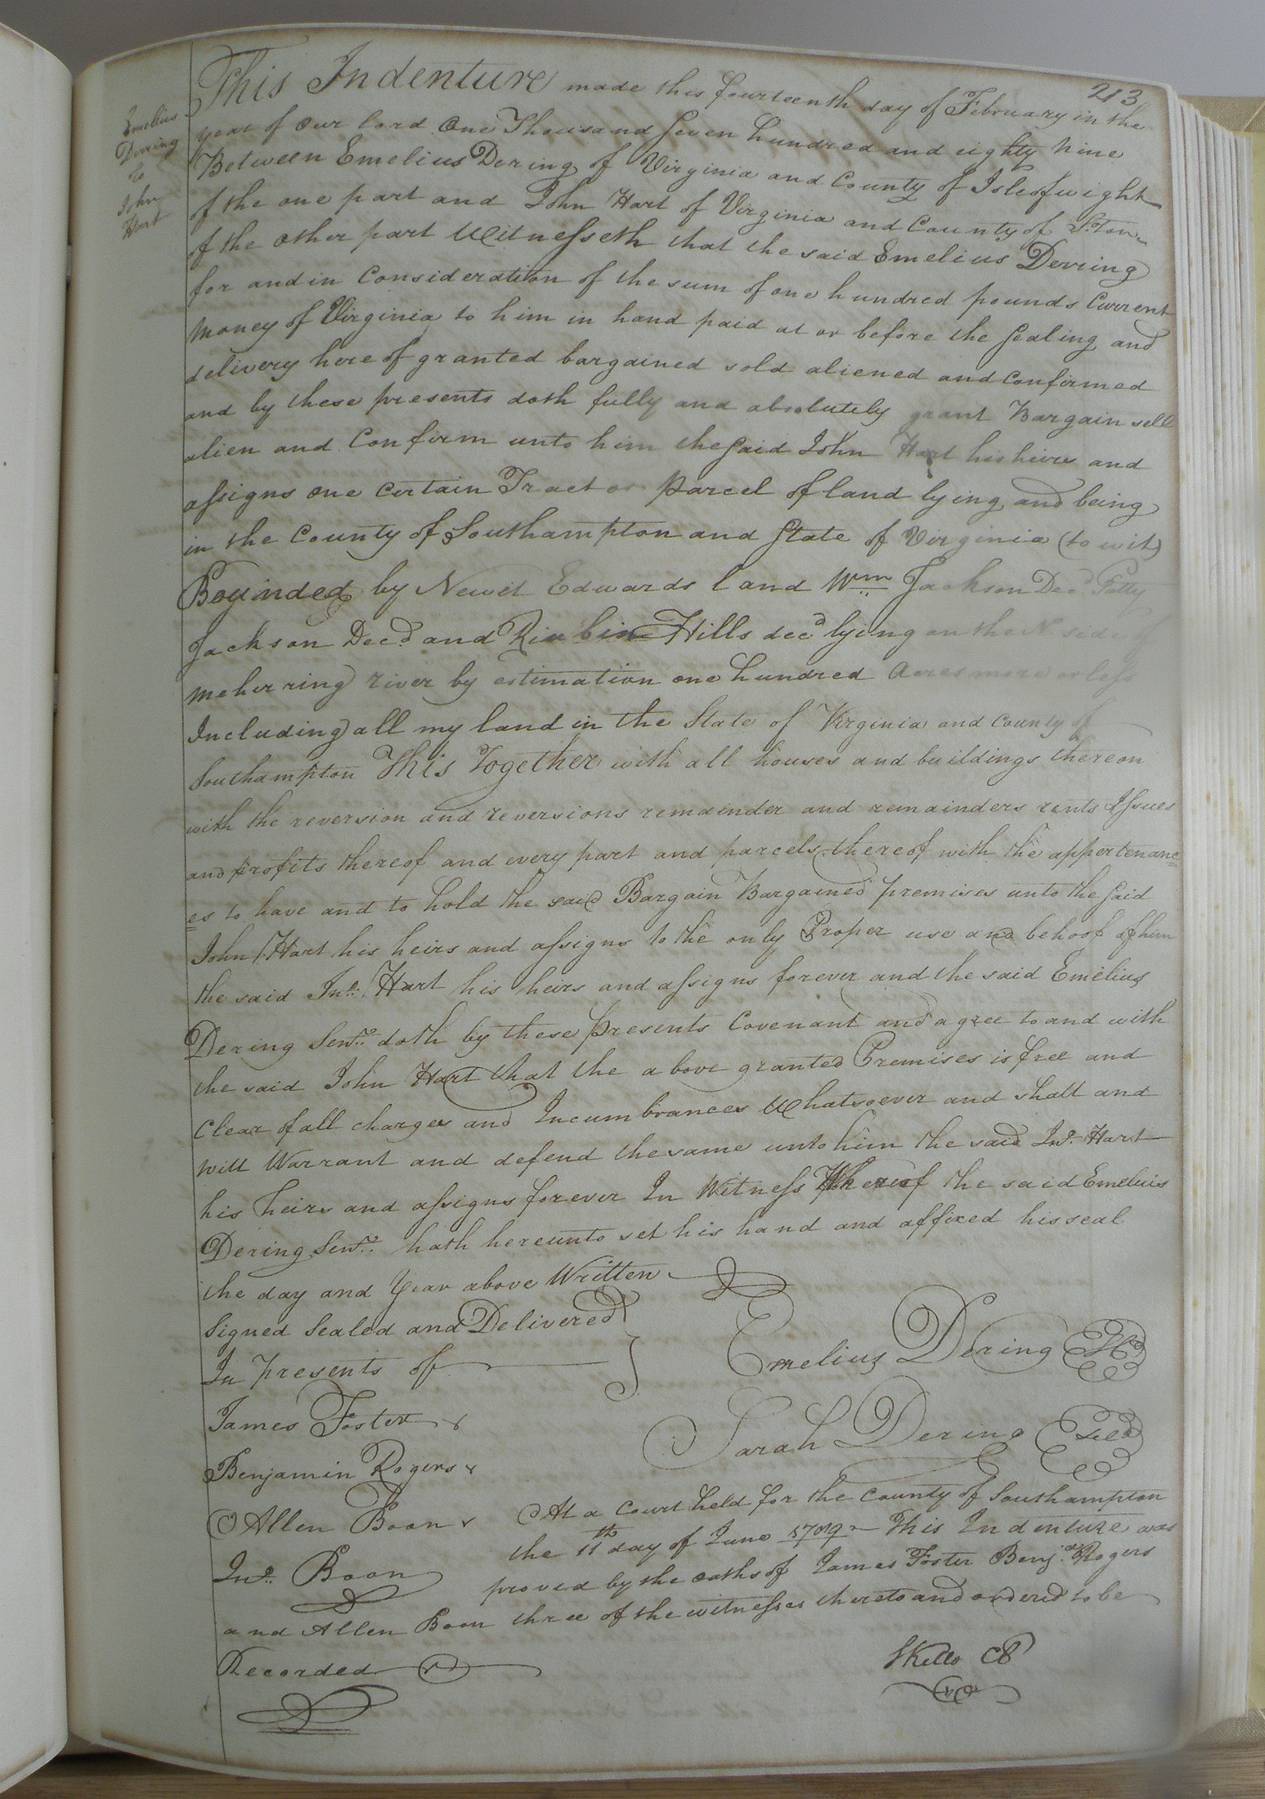 213
Emelius
Derring
to
John
Hart
This Indenture made this fourteenth day of February in the
year of our lord One Thousand Seven hundred and eighty Nine
Between Emelius Dering of Virginia and County of Isle of wight
of the one part and John Hart of Virginia and County of S.Ton
of the other part Witnesseth that the said Emelius Derring
for and in Consideration of the sum of one hundred pounds Current
Money of Virginia to him in hand paid at or before the Sealing and
delivery here of granted bargained sold aliened and Confirmed
and by these presents doth fully and absolutely grant Bargain sell
alien and Confirm unto him the Said John Hart his heirs and
assigns one Certain Tract or parcel of land lying and being
in the County of Southampton and State of Virginia (to wit)
Bounded by Newit Edwards land Wm Jackson Decd Patty
Jackson Decd and Riubin Hills decd lying on the N side of
meherring river by estimation one hundred Acres more or less
Including all my land in the State of Virginia and County of
Southampton This Together with all houses and buildings thereon
with the reversion and reversions remainder and remainders rents Issues
and profits thereof and every part and parcels thereof with the appertenanc=
es to have and to hold the said Bargain Bargained premises unto the Said
John Hart his heirs and assigns to the only Proper use and behoof of him
the said Jno. Hart his heirs and assigns forever and the said Emelius
Dering Senr. doth by these presents Covenant and agree to and with
the said John Hart that the above granted Premises is free and
Clear of all charges and Incumbrances Whatsoever and shall and
will Warrant and defend the same unto him the said Jno. Hart
his heirs and assigns forever In Witness Whereof the said Emelius
Dering Senr. hath hereunto set his hand and affixed his seal
the day and Year above Written
Signed Sealed and Delivered
In presents of
Emelius Dering
James Foster
Sarah Dering Seal
Benjamin Rogers
Allen Boon
Jno. Boon
At a Court held for the County of Southampton
the 11th day of June 1789 This Indenture was
proved by the oaths of James Foster Benja. Rogers
and Allen Boon three of the witnesses thereto and ordered to be
Recorded
SKello CC